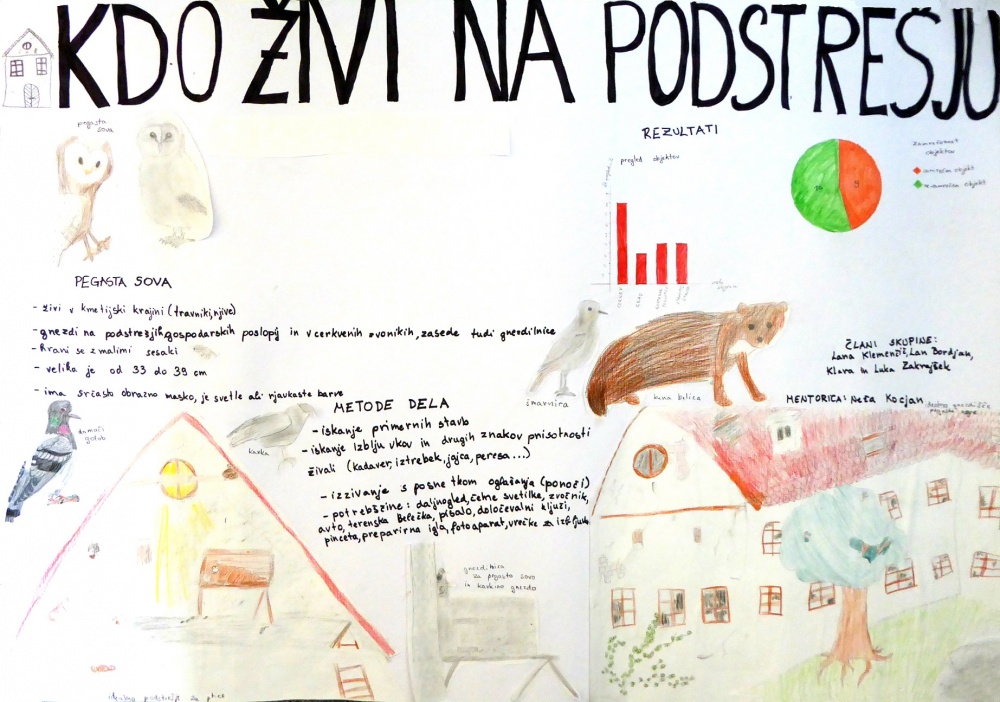 KDO ŽIVI NA PODSTREŠJU
pegasta
sova
PEGASTA SOVA
- živi v kmetijski krajini (travniki, njive)
- gnezdi na podstrešjih gospodarskih poslopij in v cerkvenih zvonikih, zasede tudi gnezdilnice
- hrani se z malimi sesalci
- velika je od 33 do 39 cm
- ima srčasto obrazno masko, je svetle ali rjavkaste barve
domači
golob
kavka
METODE DELA
- iskanje primernih stavb
- iskanje izbljuvkov in drugih znakov prisotnosti
živali (kadaver, iztrebek, jajca, peresa...)
- izzivanje s posnetkom oglašanja (ponoči)
- potrebščine: daljnogled, čelne svetilke, zvočnik,
avto, terenska beležka, pisalo, določevalni ključi,
pinceta, preparirna igla, fotoaparat, vrečke za izbljuvke
gnezdilnica
za pegasto sovo
in kavkino gnezdo
idealno podstrešje za ptice
REZULTATI
pregled objektov
zasedenost
objektov
9
šmarnica
kuna belica
ČLANI SKUPINE:
Lana Klemenčič, Lan Bordjan,
Klara in Luka Zakrajšek
MENTORICA: Neža Kocjan